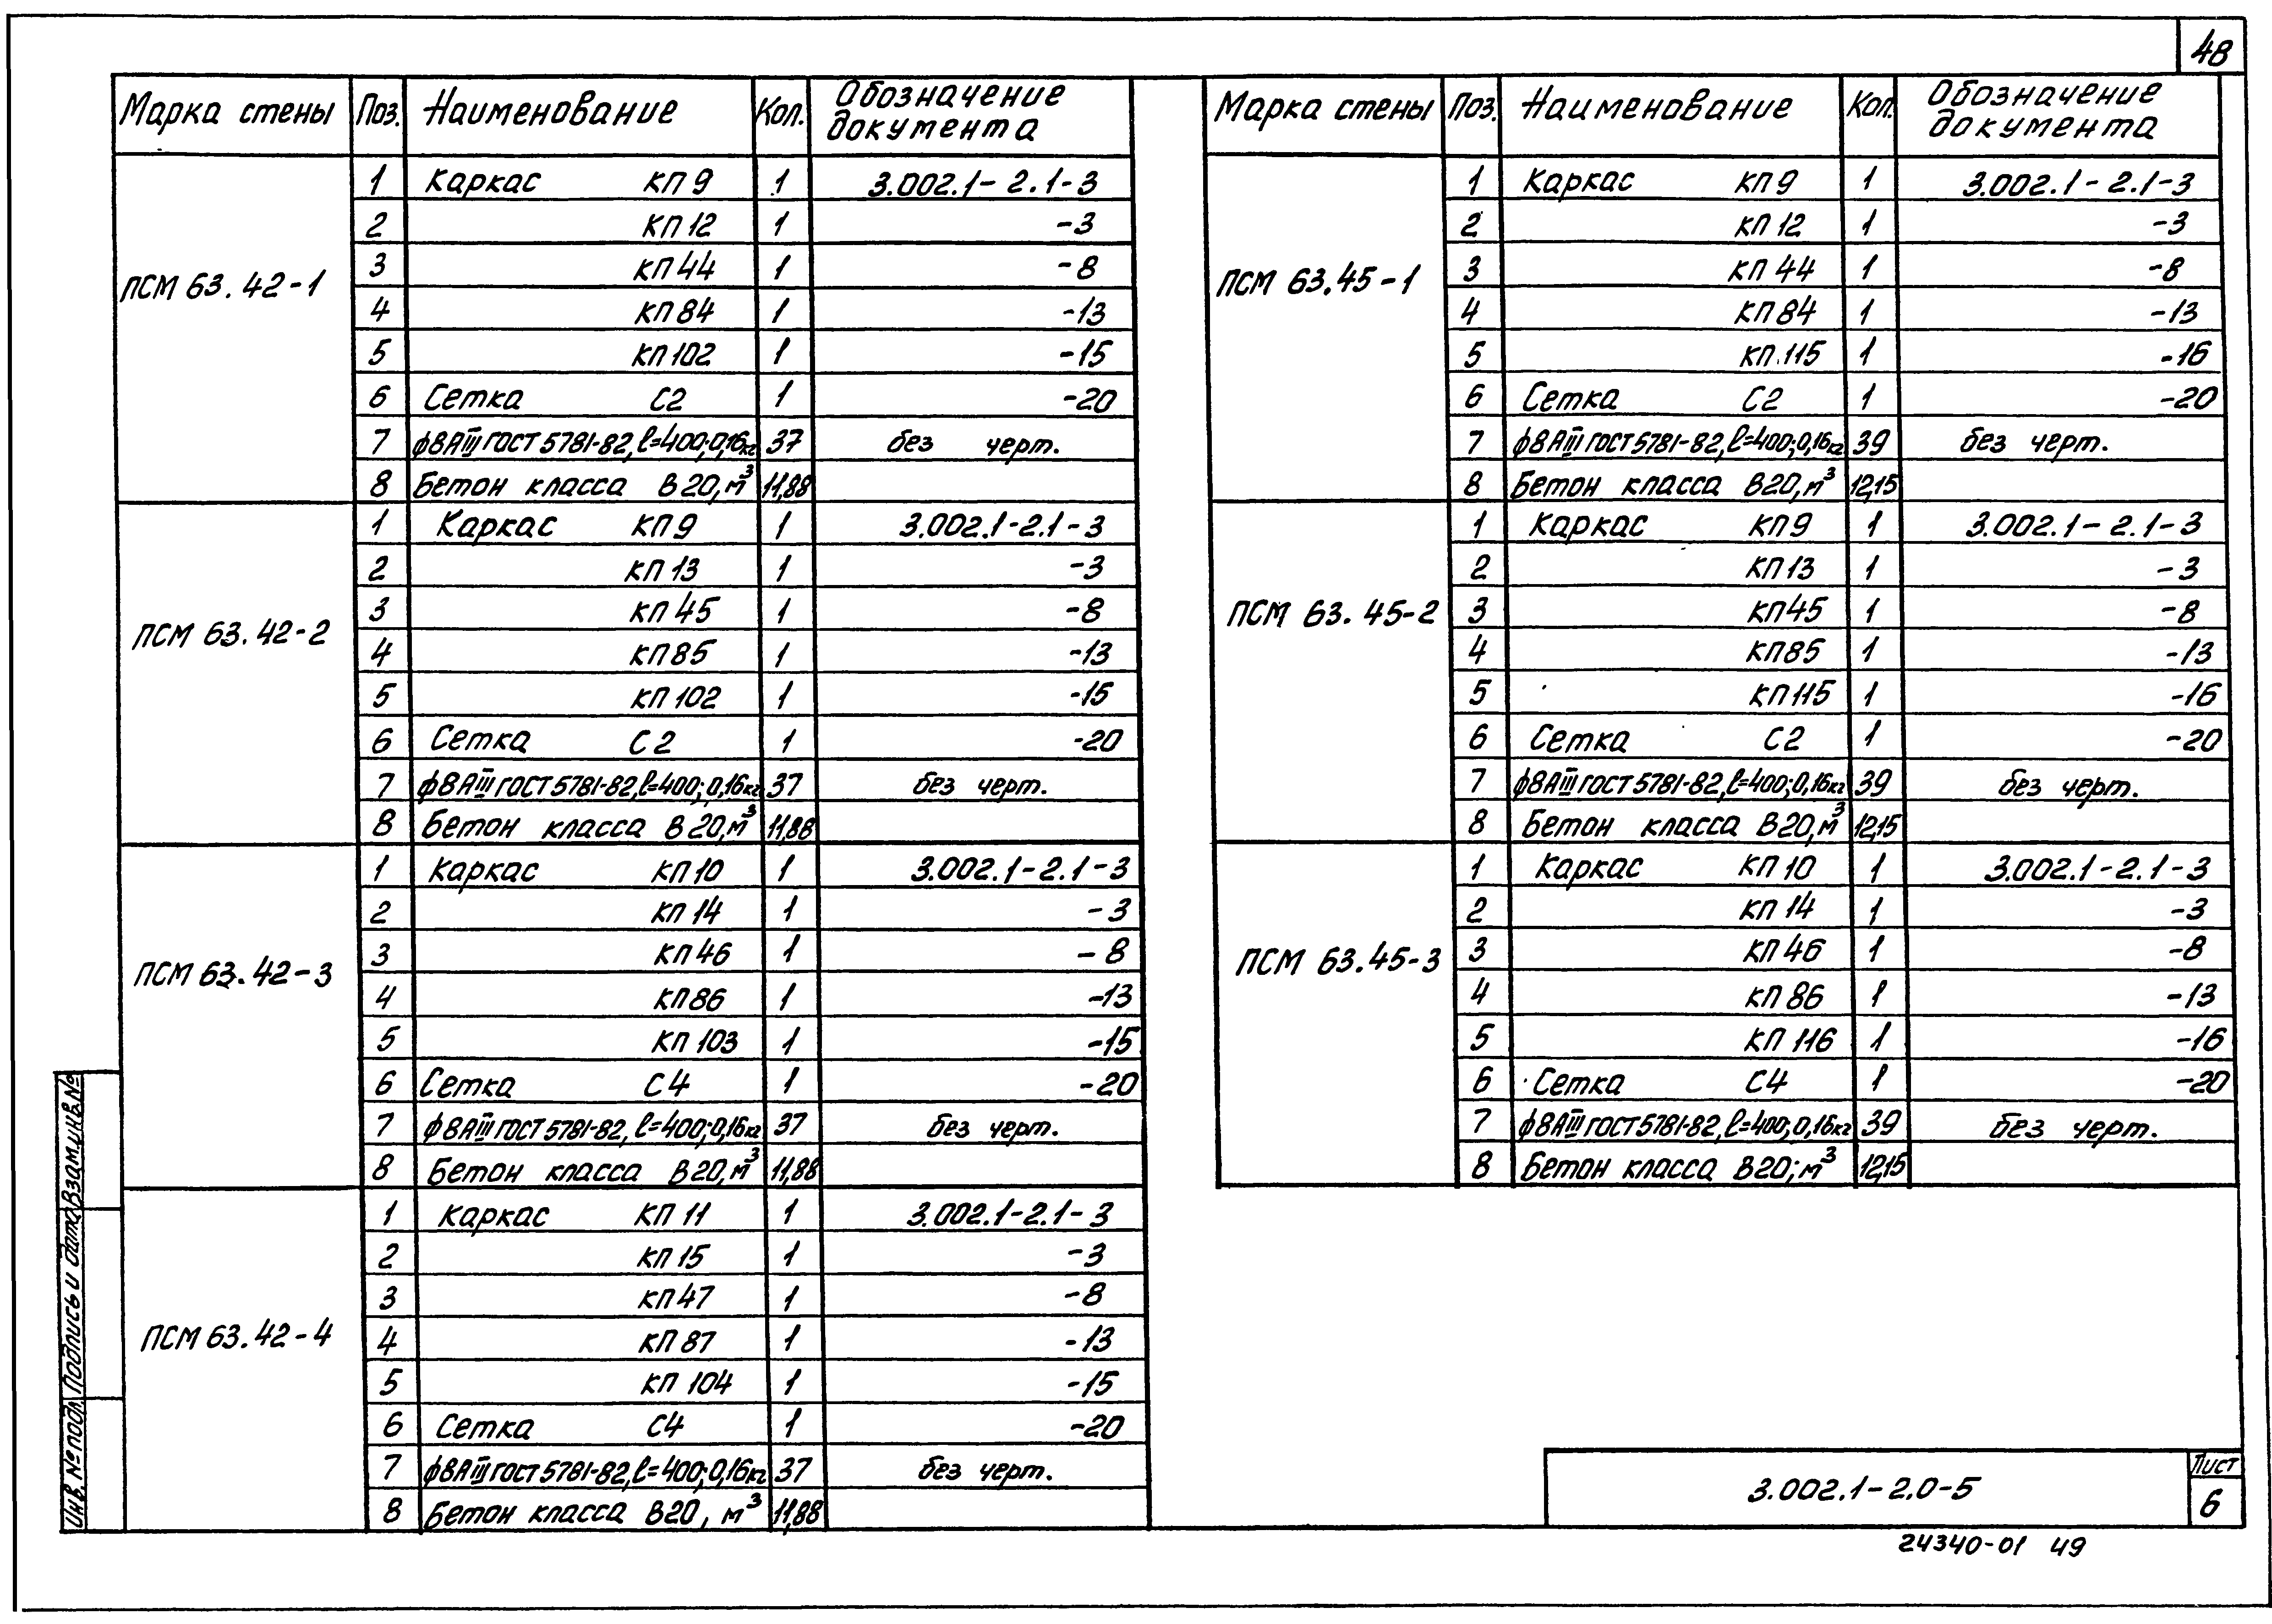 48
Марка стены Поз. Наименование Кол. Обозначение документа
ПСМ 63.42-1
1 Каркас КП 9 1 3.002.1-2.1-3
2 КП 12 1 -3
3 КП 44 1 -8
4 КП 84 1 -13
5 КП 102 1 -15
6 Сетка С2 1 -20
7 ф8АIII ГОСТ 5781-82, l=400; 0,16кг 37 без черт.
8 Бетон класса В20, м³ 11,88
ПСМ 63.42-2
1 Каркас КП 9 1 3.002.1-2.1-3
2 КП 13 1 -3
3 КП 45 1 -8
4 КП 85 1 -13
5 КП 102 1 -15
6 Сетка С2 1 -20
7 ф8АIII ГОСТ 5781-82, l=400; 0,16кг 37 без черт.
8 Бетон класса В20, м³ 11,88
ПСМ 63.42-3
1 Каркас КП 10 1 3.002.1-2.1-3
2 КП 14 1 -3
3 КП 46 1 -8
4 КП 86 1 -13
5 КП 103 1 -15
6 Сетка С4 1 -20
7 ф8АIII ГОСТ 5781-82, l=400; 0,16кг 37 без черт.
8 Бетон класса В20, м³ 11,88
ПСМ 63.42-4
1 Каркас КП 11 1 3.002.1-2.1-3
2 КП 15 1 -3
3 КП 47 1 -8
4 КП 87 1 -13
5 КП 104 1 -15
6 Сетка С4 1 -20
7 ф8АIII ГОСТ 5781-82, l=400; 0,16кг 37 без черт.
8 Бетон класса В20, м³ 11,88
Марка стены Поз. Наименование Кол. Обозначение документа
ПСМ 63.45-1
1 Каркас КП 9 1 3.002.1-2.1-3
2 КП 12 1 -3
3 КП 44 1 -8
4 КП 84 1 -13
5 КП 115 1 -16
6 Сетка С2 1 -20
7 ф8АIII ГОСТ 5781-82, l=400; 0,16кг 39 без черт.
8 Бетон класса В20, м³ 12,15
ПСМ 63.45-2
1 Каркас КП 9 1 3.002.1-2.1-3
2 КП 13 1 -3
3 КП 45 1 -8
4 КП 85 1 -13
5 КП 115 1 -16
6 Сетка С2 1 -20
7 ф8АIII ГОСТ 5781-82, l=400; 0,16кг 39 без черт.
8 Бетон класса В20, м³ 12,15
ПСМ 63.45-3
1 Каркас КП 10 1 3.002.1-2.1-3
2 КП 14 1 -3
3 КП 46 1 -8
4 КП 86 1 -13
5 КП 116 1 -16
6 Сетка С4 1 -20
7 ф8АIII ГОСТ 5781-82, l=400; 0,16кг 39 без черт.
8 Бетон класса В20; м³ 12,15
Инв. № подл. Подпись и дата Взам.инв.№
3.002.1-2.0-5
Лист
6
24340-01 49